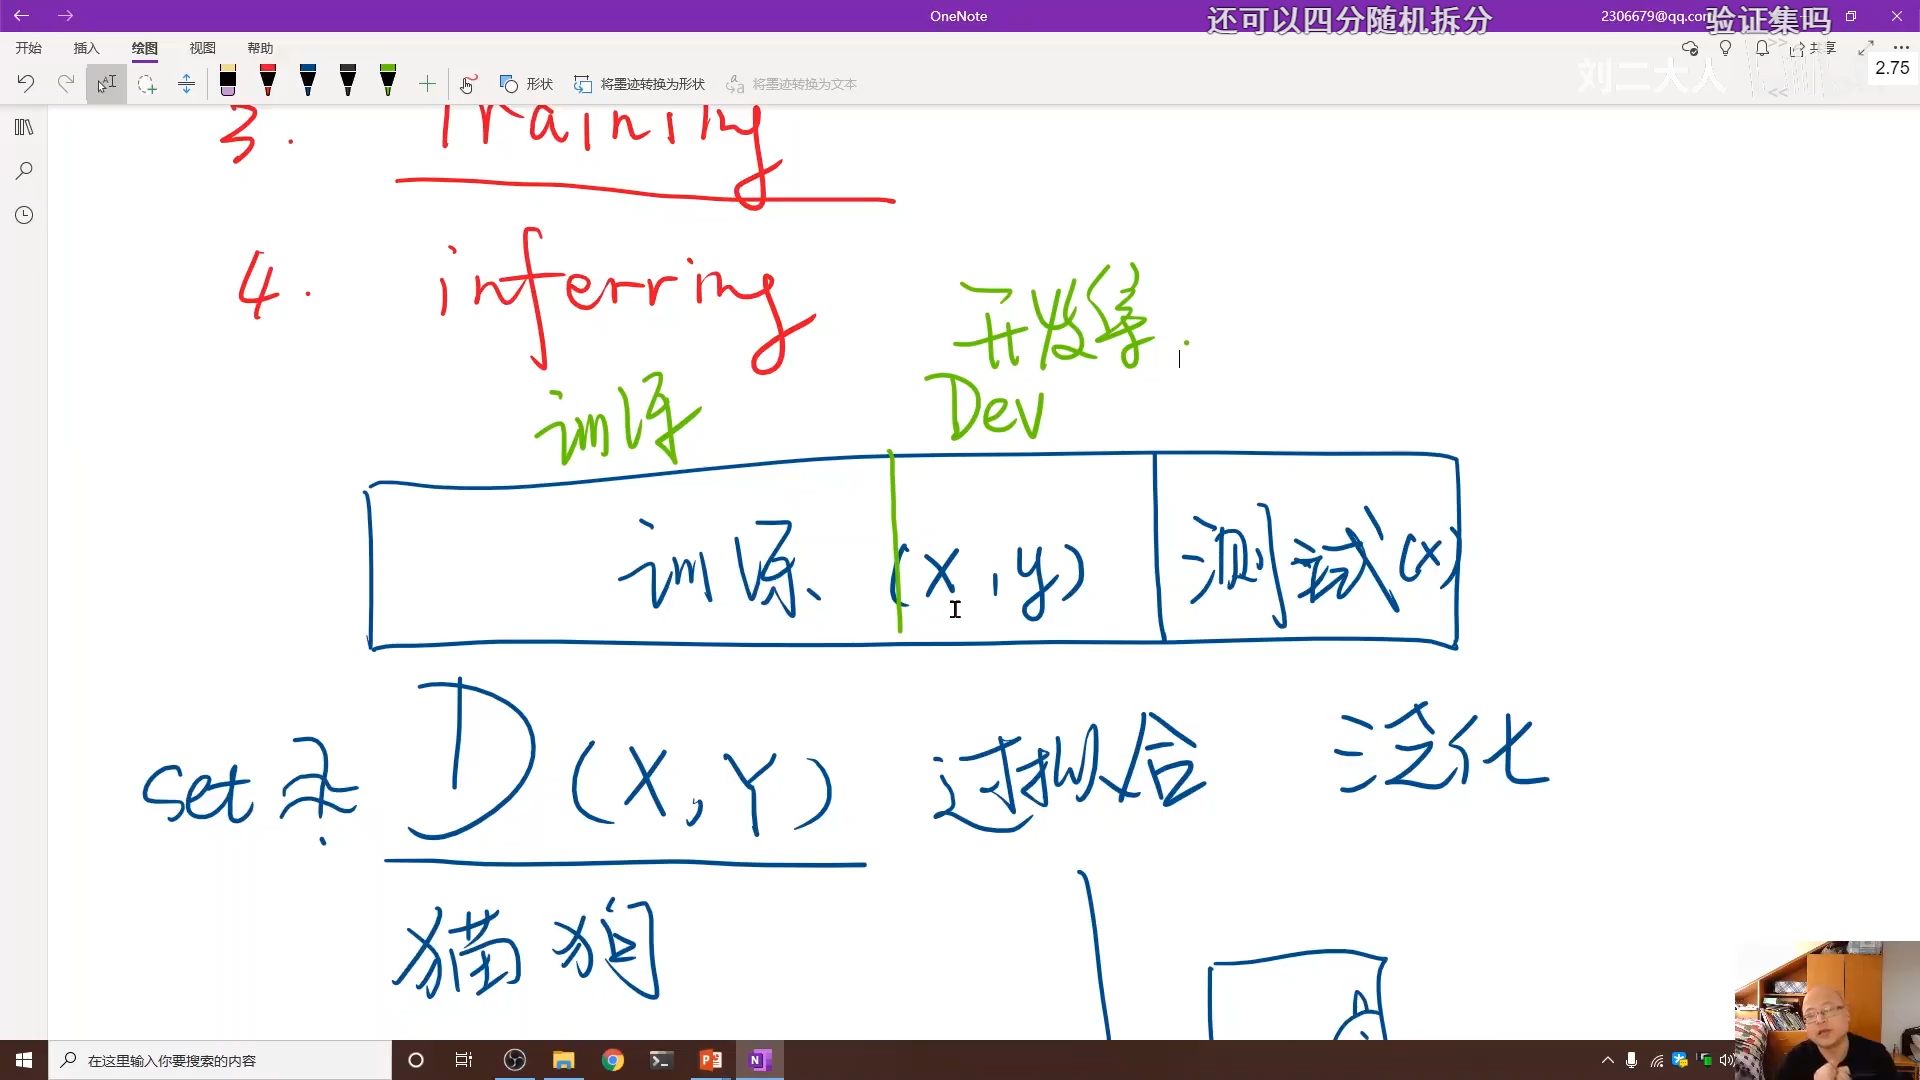 OneNote
还可以四分随机拆分
2306679@qq.com
验证集吗
开始 插入 绘图 视图 帮助
共享
刘二大人
2.75
形状 将墨迹转换为形状 将墨迹转换为文本
3. Training
4. inferring
开发集.
训练 Dev
训练 (x, y) 测试(x)
Set D (X, Y) 过拟合 泛化
猫 狗
在这里输入你要搜索的内容